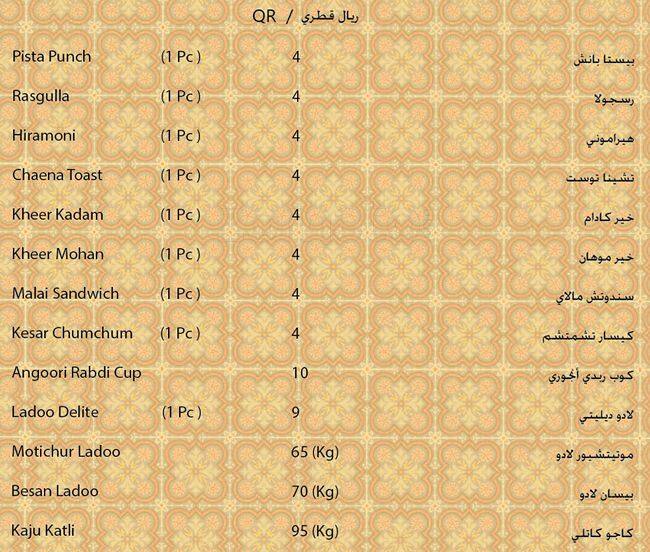 QR / ريال قطري
Pista Punch (1 Pc ) 4 بيستا بانش
Rasgulla (1 Pc ) 4 رسجولا
Hiramoni (1 Pc ) 4 هيراموني
Chaena Toast (1 Pc ) 4 تشينا توست
Kheer Kadam (1 Pc ) 4 خير كادام
Kheer Mohan (1 Pc ) 4 خير موهان
Malai Sandwich (1 Pc ) 4 سندوتش مالاي
Kesar Chumchum (1 Pc ) 4 كيسار تشمتشم
Angoori Rabdi Cup 10 كوب ربدي أنجوري
Ladoo Delite (1 Pc ) 9 لادو ديليتي
Motichur Ladoo 65 (Kg) موتيتشيور لادو
Besan Ladoo 70 (Kg) بيسان لادو
Kaju Katli 95 (Kg) كاجو كاتلي